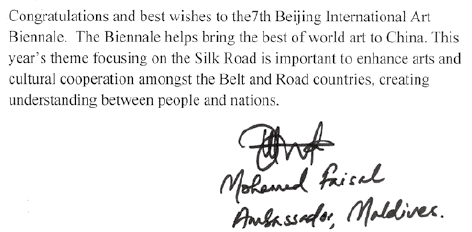 Congratulations and best wishes to the7th Beijing International Art
Biennale. The Biennale helps bring the best of world art to China. This
year's theme focusing on the Silk Road is important to enhance arts and
cultural cooperation amongst the Belt and Road countries, creating
understanding between people and nations.
Mohamed Faisal
Ambassador, Maldives.